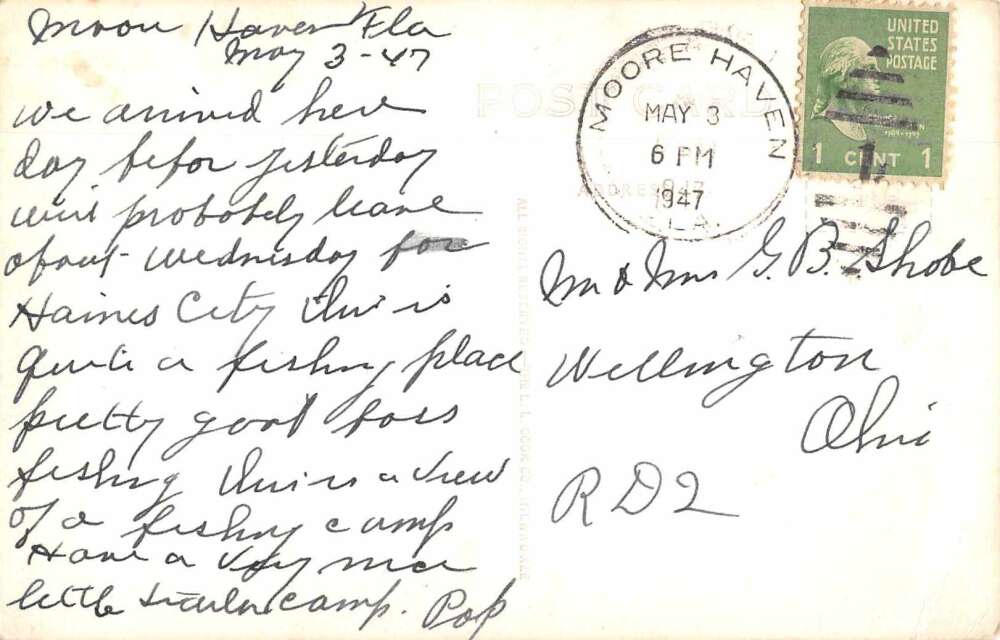 Moon Haven Fla
May 3-47
we arrived here
day befor yesterday
will probobly leave
about wednesday for
Haines City this is
quite a fishing place
pretty good bass
fishing this is a view
of a fishing camp
Have a very nice
little trailer camp. Pop
POST CARD
ADDRESS
MOORE HAVEN
MAY 3
6 PM
1947
FLA.
UNITED
STATES
POSTAGE
1 CENT 1
Mr & Mrs G. B. Shobe
Wellington
Ohio
RD2
ALL RIGHTS RESERVED THE L. L. COOK CO., MILWAUKEE